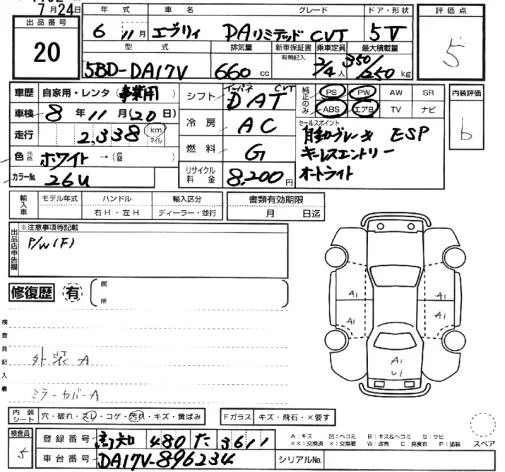 7月24日
出品番号
20
年式 車名 グレード ドア・形状
6年11月 エヴリィ DAリミテッド CVT 5V
型式 排気量 新車保証書 乗車定員 最大積載量
有無記入
5BD-DA17V 660cc 2/4人 350/250kg
評価点
5
車歴 自家用・レンタ・事業用
車検 8年11月(20日)
走行 2,338 km マイル
色 ホワイト→(
カラーNo. 26U
シフト インパネ CVT DAT
冷房 AC
燃料 G
リサイクル料金 8,200円
純正のみ
PS PW AW SR
ABS エアB TV ナビ
セールスポイント
自動ブレーキ ESP
キーレスエントリー
オートライト
内装評価
b
輸入車 モデル年式 ハンドル 輸入区分
年 右H・左H ディーラー・並行
書類有効期限
月 日迄
出品店申告欄
※注意事項等記載
P/W(F)
修復歴 有
箇所
検査員記入欄
外装A
ミラーカバーA
A1 A1
A1
U1
内装シート 穴・破れ・スレ・コゲ・汚れ・キズ・黄ばみ
Fガラス キズ・飛石・×要す
スペア
検査員
5
登録番号 高知 480 た 3611
車台番号 DA17V-896234
シリアルNo.
A:キズ U:ヘコミ B:キズ&ヘコミ S:サビ
××:交換済 X:交換要 W:波 C:腐食 P:塗装